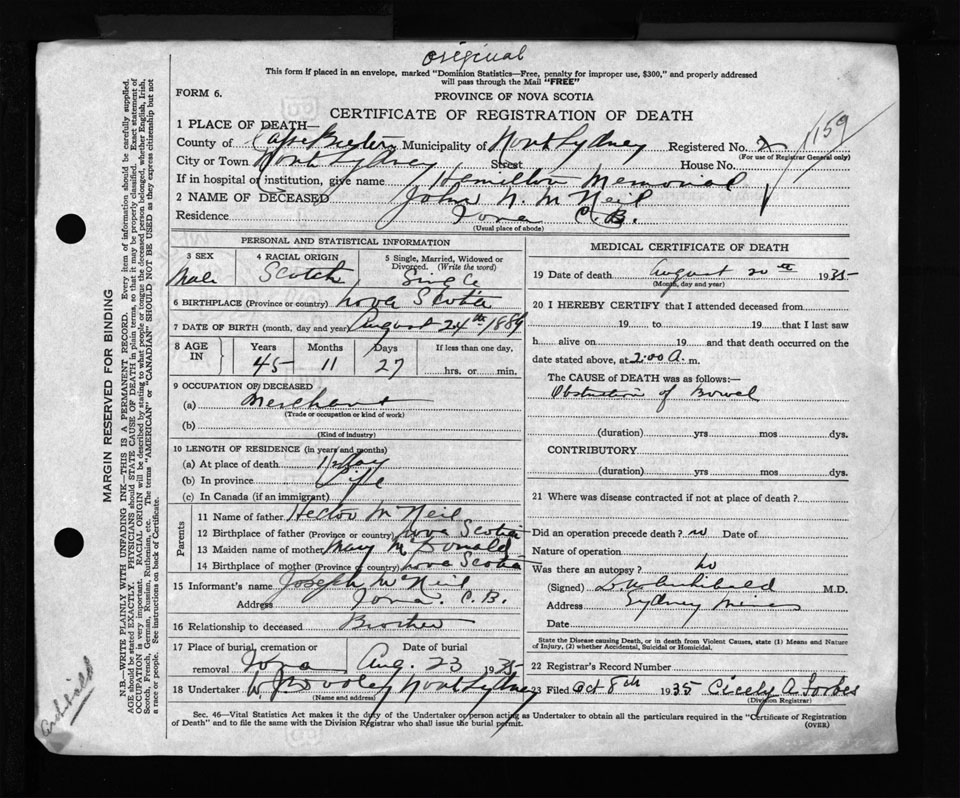 original
This form if placed in an envelope, marked "Dominion Statistics—Free, penalty for improper use, $300," and properly addressed
will pass through the Mail "FREE"
FORM 6.
PROVINCE OF NOVA SCOTIA
CERTIFICATE OF REGISTRATION OF DEATH
159
1 PLACE OF DEATH—
County of Cape Breton Municipality of North Sydney Registered No. 2
(For use of Registrar General only)
City or Town North Sydney Street House No.
If in hospital or institution, give name Hamilton Memorial
2 NAME OF DECEASED John N. McNeil
Residence Iona C.B.
(Usual place of abode)
PERSONAL AND STATISTICAL INFORMATION
3 SEX Male
4 RACIAL ORIGIN Scotch
5 Single, Married, Widowed or Divorced. (Write the word) Single
6 BIRTHPLACE (Province or country) Nova Scotia
7 DATE OF BIRTH (month, day and year) August 24th 1889
8 AGE IN Years Months Days If less than one day,
45 11 27 hrs. or min.
9 OCCUPATION OF DECEASED
(a) Merchant
(Trade or occupation or kind of work)
(b)
(Kind of industry)
10 LENGTH OF RESIDENCE (in years and months)
(a) At place of death Day
(b) In province Life
(c) In Canada (if an immigrant)
Parents
11 Name of father Hector McNeil
12 Birthplace of father (Province or country) Nova Scotia
13 Maiden name of mother Mary McDonald
14 Birthplace of mother (Province or country) Nova Scotia
15 Informant's name Joseph McNeil
Address Iona. C.B.
16 Relationship to deceased Brother
17 Place of burial, cremation or removal Iona
Date of burial Aug. 23 1935
18 Undertaker W. J. Dooley North Sydney
(Name and address)
MEDICAL CERTIFICATE OF DEATH
19 Date of death August 20th 1935
(Month, day and year)
20 I HEREBY CERTIFY that I attended deceased from
19 to 19 that I last saw
h alive on 19 and that death occurred on the
date stated above, at 2:00 A. m.
The CAUSE of DEATH was as follows:—
Obstruction of Bowel
(duration) yrs mos dys.
CONTRIBUTORY
(duration) yrs mos dys.
21 Where was disease contracted if not at place of death?
Did an operation precede death? no Date of
Nature of operation
Was there an autopsy? No
(Signed) Archibald M.D.
Address Sydney Mines
Date
State the Disease causing Death, or in death from Violent Causes, state (1) Means and Nature
of Injury, (2) whether Accidental, Suicidal or Homicidal.
22 Registrar's Record Number
23 Filed Oct 8th 1935 Cicely A Forbes
(Division Registrar)
Sec. 46—Vital Statistics Act makes it the duty of the Undertaker or person acting as Undertaker to obtain all the particulars required in the "Certificate of Registration
of Death" and to file the same with the Division Registrar who shall issue the burial permit.
(OVER)
MARGIN RESERVED FOR BINDING
N.B.—WRITE PLAINLY WITH UNFADING INK—THIS IS A PERMANENT RECORD. Every item of information should be carefully supplied.
AGE should be stated EXACTLY. PHYSICIANS should STATE CAUSE OF DEATH in plain terms, so that it may be properly classified. Exact statement of
OCCUPATION is very important. RACIAL ORIGIN will be described by stating to what people or tongue the deceased person belonged, whether English, Irish,
Scotch, French, German, Russian, Ruthenian, etc. The terms "AMERICAN" or "CANADIAN" SHOULD NOT BE USED as they express citizenship but not
a race or people. See instructions on back of Certificate.
Archibald